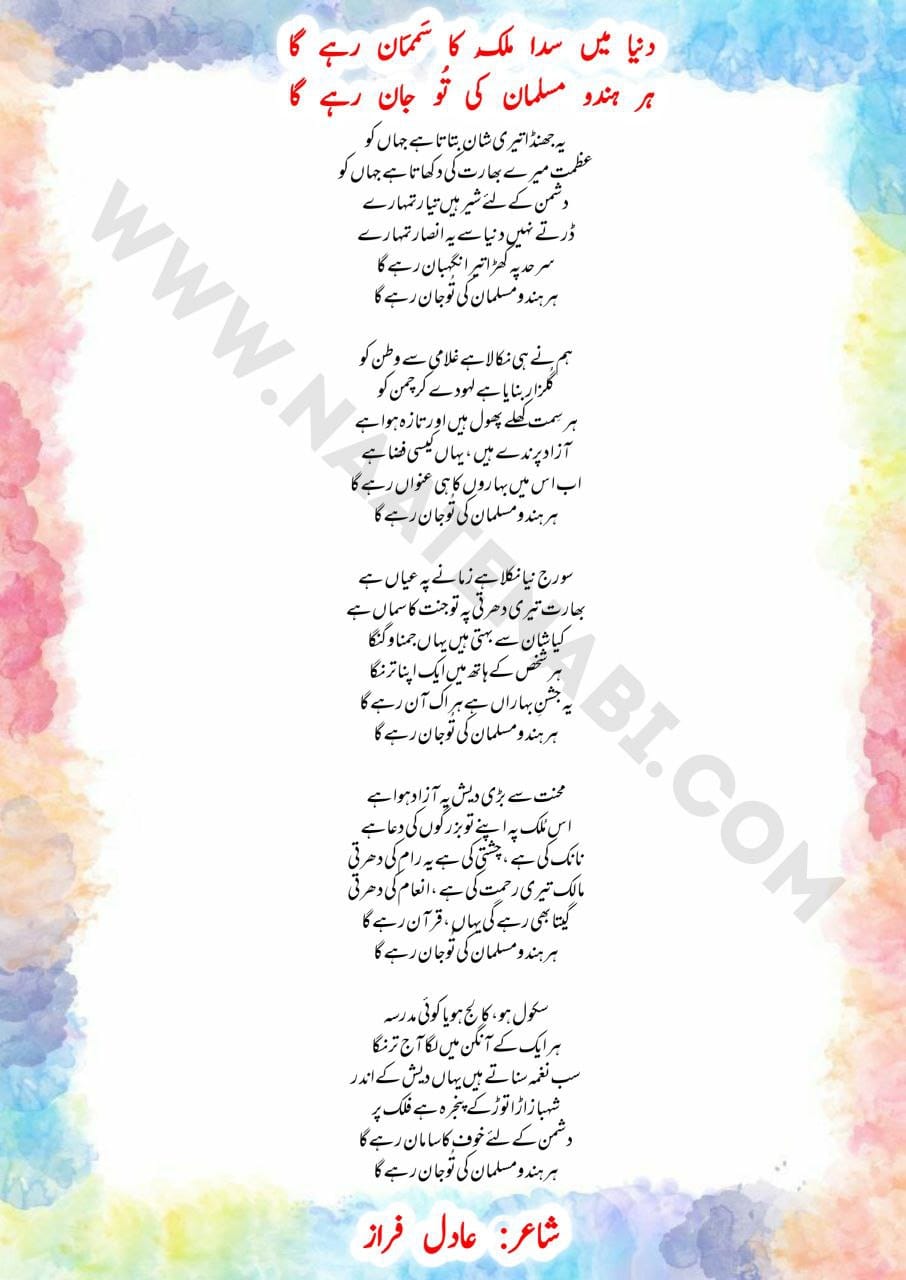 دنیا میں سدا ملک کا سَمّان رہے گا
ہر ہندو مسلمان کی تُو جان رہے گا
یہ جھنڈا تیری شان بتاتا ہے جہاں کو
عظمت میرے بھارت کی دکھاتا ہے جہاں کو
دشمن کے لئے شیر ہیں تیار تمہارے
ڈرتے نہیں دنیا سے یہ انصار تمہارے
سرحد پہ کھڑا تیرا نگہبان رہے گا
ہر ہندو مسلمان کی تُو جان رہے گا
ہم نے ہی نکالا ہے غلامی سے وطن کو
گلزار بنایا ہے لہو دے کر چمن کو
ہر سِمت کھلے پھول ہیں اور تازہ ہوا ہے
آزاد پرندے ہیں، یہاں کیسی فضا ہے
اب اس میں بہاروں کا ہی عنواں رہے گا
ہر ہندو مسلمان کی تُو جان رہے گا
سورج نیا نکلا ہے زمانے پہ عیاں ہے
بھارت تیری دھرتی پہ تو جنت کا سماں ہے
کیا شان سے بہتی ہیں یہاں جمنا و گنگا
ہر شخص کے ہاتھ میں ایک اپنا ترنگا
یہ جشنِ بہاراں ہے ہر اک آن رہے گا
ہر ہندو مسلمان کی تُو جان رہے گا
محنت سے بڑی دیش یہ آزاد ہوا ہے
اس مُلک پہ اپنے تو بزرگوں کی دعا ہے
نانک کی ہے، چشتی کی ہے یہ رام کی دھرتی
مالک تیری رحمت کی ہے، انعام کی دھرتی
گیتا بھی رہے گی یہاں، قرآن رہے گا
ہر ہندو مسلمان کی تُو جان رہے گا
سکول ہو، کالج ہو یا کوئی مدرسہ
ہر ایک کے آنگن میں لگا آج ترنگا
سب نغمہ سناتے ہیں یہاں دیش کے اندر
شہباز اڑا توڑ کے پنجرہ ہے فلک پر
دشمن کے لئے خوف کا سامان رہے گا
ہر ہندو مسلمان کی تُو جان رہے گا
شاعر: عادل فراز
WWW.NAATENABI.COM